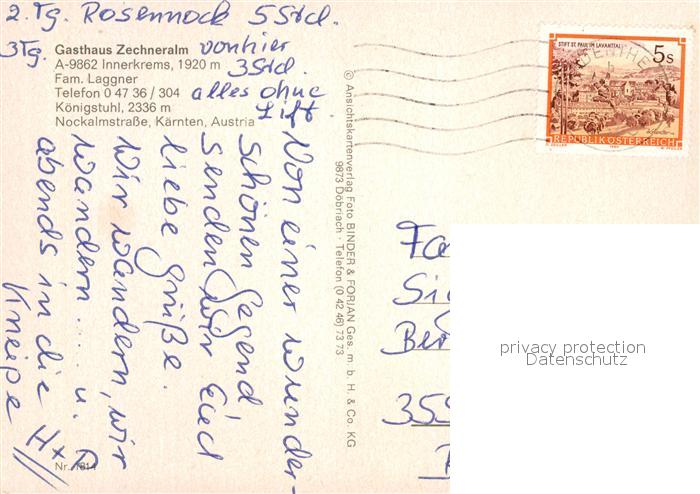 2. Tg. Rosennock 5 Std.
3 Tg. von hier
3 Std.
alles ohne
Lift
Gasthaus Zechneralm
A-9862 Innerkrems, 1920 m
Fam. Laggner
Telefon 0 47 36 / 304
Königstuhl, 2336 m
Nockalmstraße, Kärnten, Austria
Von einer wunder-
schönen Gegend
senden wir Euch
liebe Grüße.
Wir wandern, wir
wandern ..... u.
abends in die
Kneipe
H +
Nr. 1814
© Ansichtskartenverlag Foto BINDER & FORIAN Ges. m. b. H. & Co. KG
9873 Döbriach · Telefon (0 42 46) 73 73
STIFT ST. PAUL IM LAVANTTAL
5 S
REPUBLIK ÖSTERREICH
Fa
Si
Ber
35
privacy protection
Datenschutz